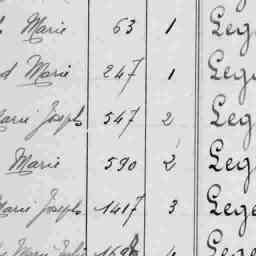 Marie 63 1 Leg
d Marie 247 1 Leg
Marie Joseph 547 2 Leg
Marie 590 2 Leg
Marie Joseph 1417 3 Lege
Marie 4 Lege